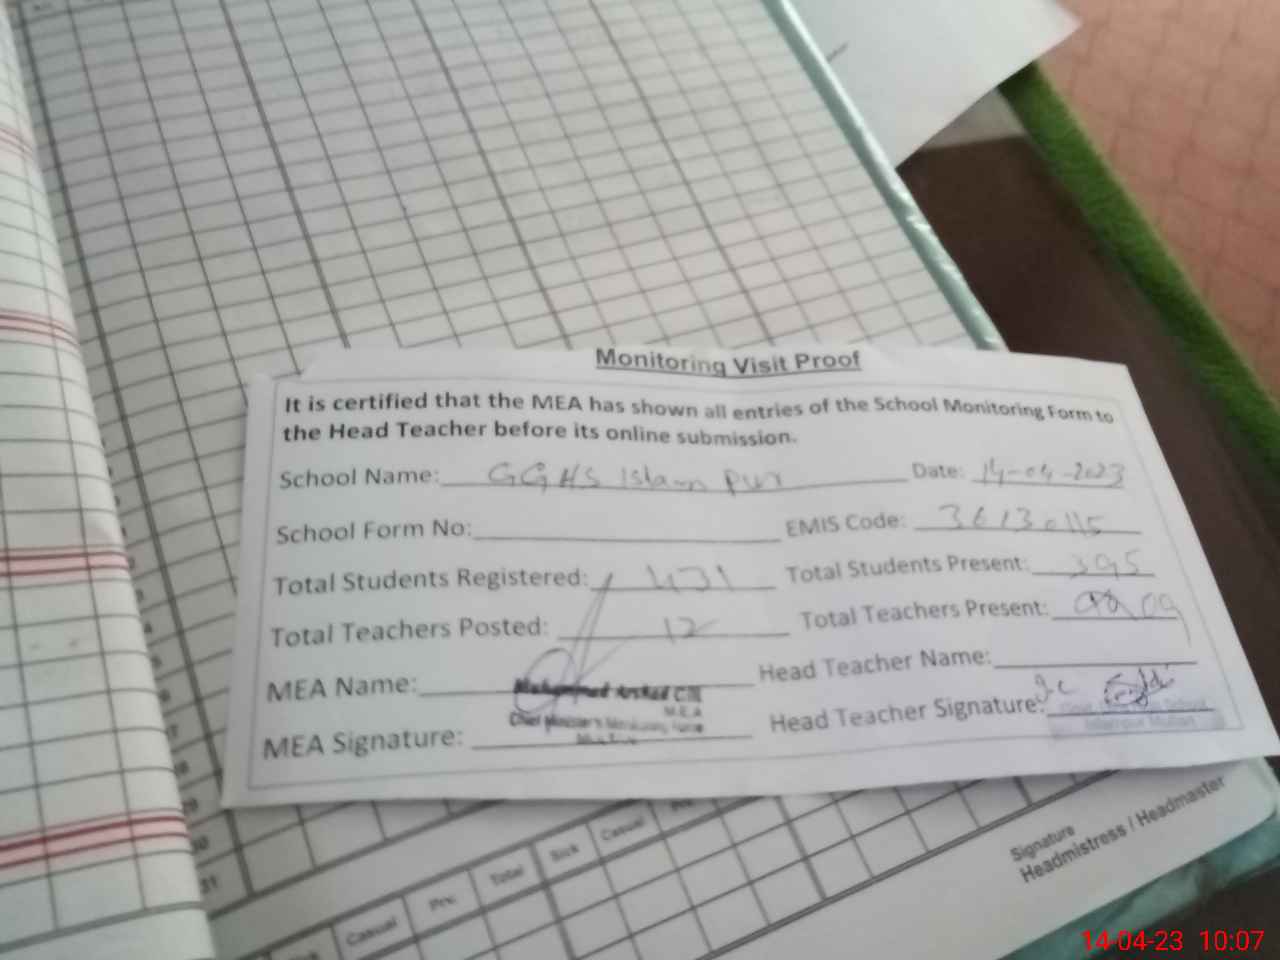 Monitoring Visit Proof
It is certified that the MEA has shown all entries of the School Monitoring Form to
the Head Teacher before its online submission.
School Name: GGHS Islam pur Date: 14-04-2023
School Form No: EMIS Code: 36130115
Total Students Registered: 431 Total Students Present: 395
Total Teachers Posted: 12 Total Teachers Present: 09
MEA Name: Head Teacher Name:
Muhammad Arshad
M.E.A
Chief Minister's Monitoring Force
MEA Signature: Head Teacher Signature:
Casual Prv. Total Sick Casual
31
Signature
Headmistress / Headmaster
14-04-23 10:07